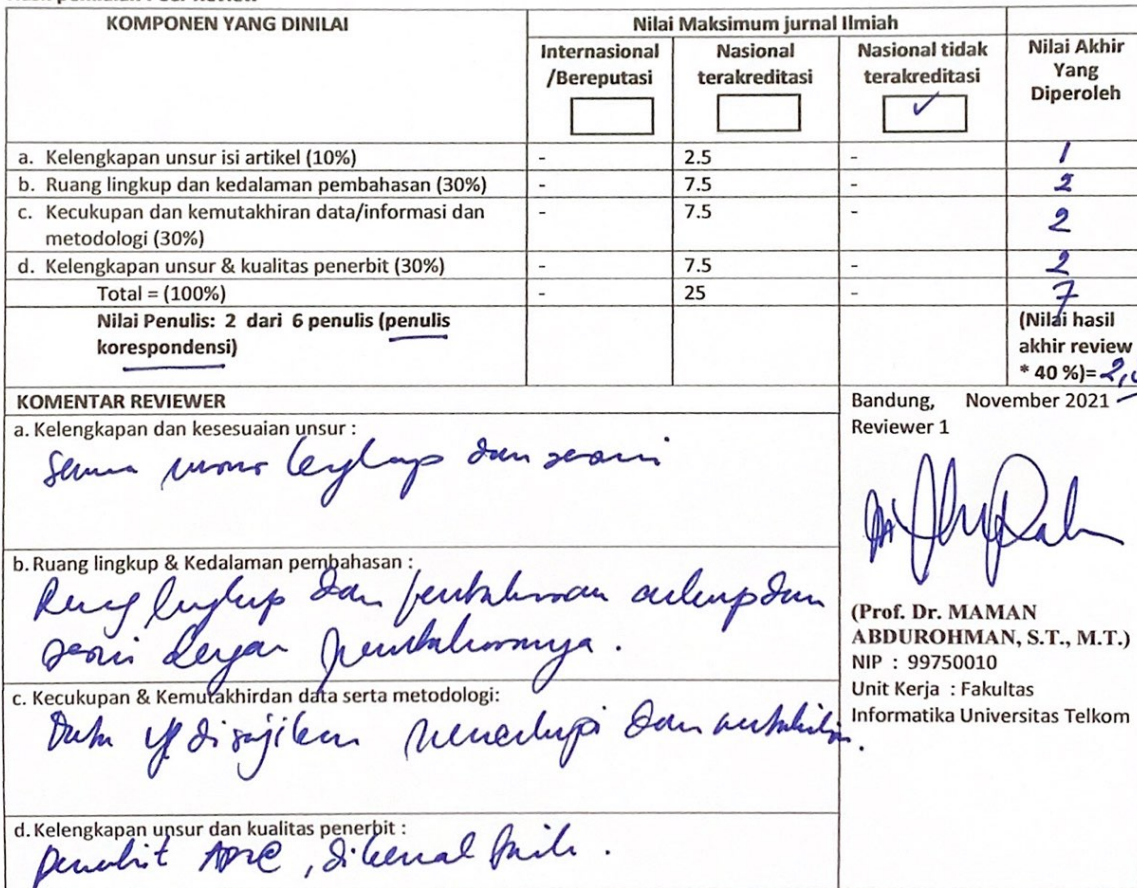 KOMPONEN YANG DINILAI
Nilai Maksimum jurnal Ilmiah
Internasional /Bereputasi
Nasional terakreditasi
Nasional tidak terakreditasi
✓
Nilai Akhir Yang Diperoleh
a. Kelengkapan unsur isi artikel (10%) - 2.5 - 1
b. Ruang lingkup dan kedalaman pembahasan (30%) - 7.5 - 2
c. Kecukupan dan kemutakhiran data/informasi dan metodologi (30%) - 7.5 - 2
d. Kelengkapan unsur & kualitas penerbit (30%) - 7.5 - 2
Total = (100%) - 25 - 7
Nilai Penulis: 2 dari 6 penulis (penulis korespondensi)
(Nilai hasil akhir review * 40 %)= 2,
KOMENTAR REVIEWER
a. Kelengkapan dan kesesuaian unsur :
Semua unsur lengkap dan sesuai
b. Ruang lingkup & Kedalaman pembahasan :
Ruang lingkup dan pembahasan cukup dan
sesuai dengan
c. Kecukupan & Kemutakhirdan data serta metodologi:
Data yg disajikan mencukupi dan mutakhir.
d. Kelengkapan unsur dan kualitas penerbit :
penerbit , dikenal baik.
Bandung, November 2021
Reviewer 1
(Prof. Dr. MAMAN
ABDUROHMAN, S.T., M.T.)
NIP : 99750010
Unit Kerja : Fakultas
Informatika Universitas Telkom